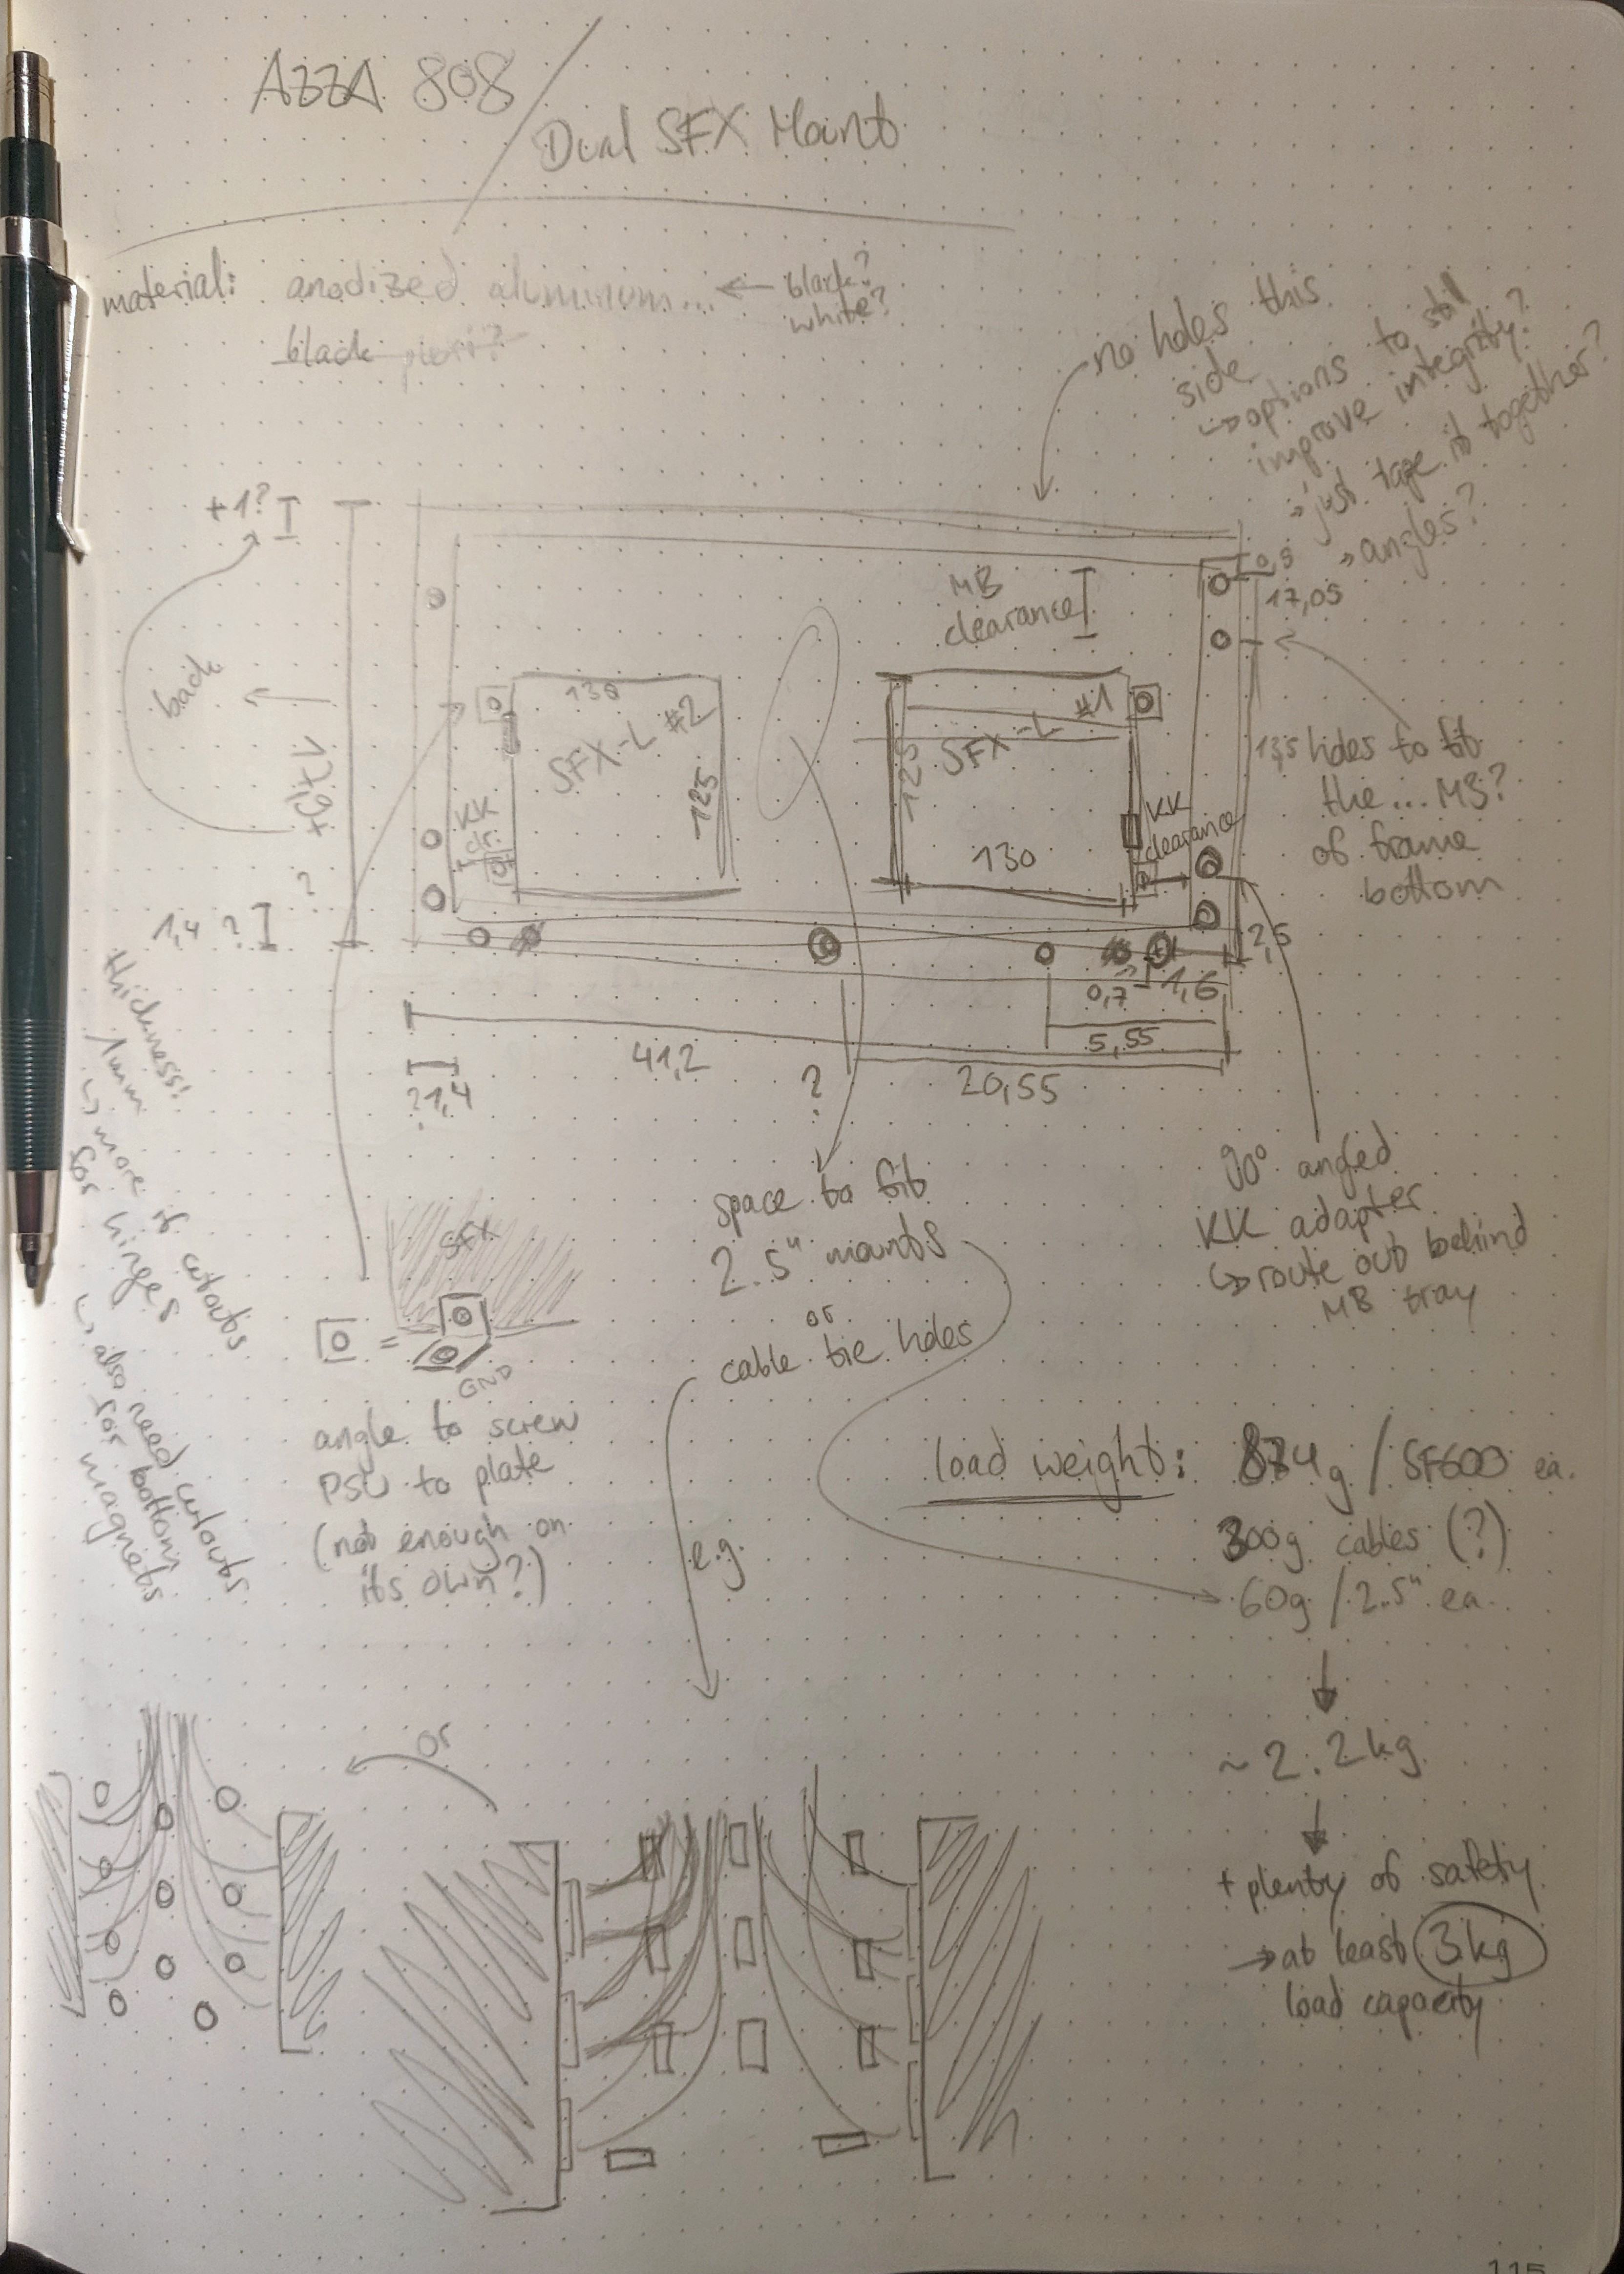 AZZA 808
Dual SFX Mount
material: anodized aluminum... ← black?
white?
black plexi?
no holes this
side
↳ options to still
improve integrity?
→ just tape it together?
→ angles?
+1?
back
1,4 ?
?
MB
clearance
0,5
17,05
13,5
holes to fit
the ... MB?
of frame
bottom
130
SFX-L #2
125
KK
clr.
SFX-L #1
125
130
KK
clearance
2,5
0,7
1,6
5,55
41,2
20,55
? 1,4
?
thickness!
1mm
↳ more if cutouts
for hinges
↳ also need cutouts
for bottom
magnets
SFX
=
GND
angle to screw
PSU to plate
(not enough on
its own?)
space to fit
2.5" mounts
or
cable tie holes
e.g.
or
90° angled
KK adapter
↳ route out behind
MB tray
load weight: 834g / SF600 ea.
300g cables (?)
60g / 2.5" ea.
~ 2.2kg
+ plenty of safety
→ at least 3kg
load capacity
115